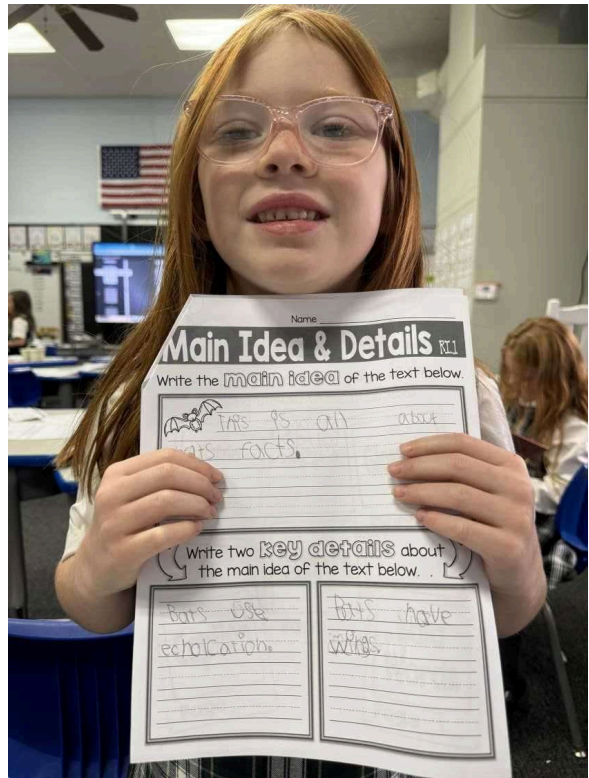 Name
Main Idea & Details RI.1
Write the main idea of the text below.
This is all about
bats facts.
Write two key details about
the main idea of the text below.
Bats use
echolcation.
Bats have
wings.